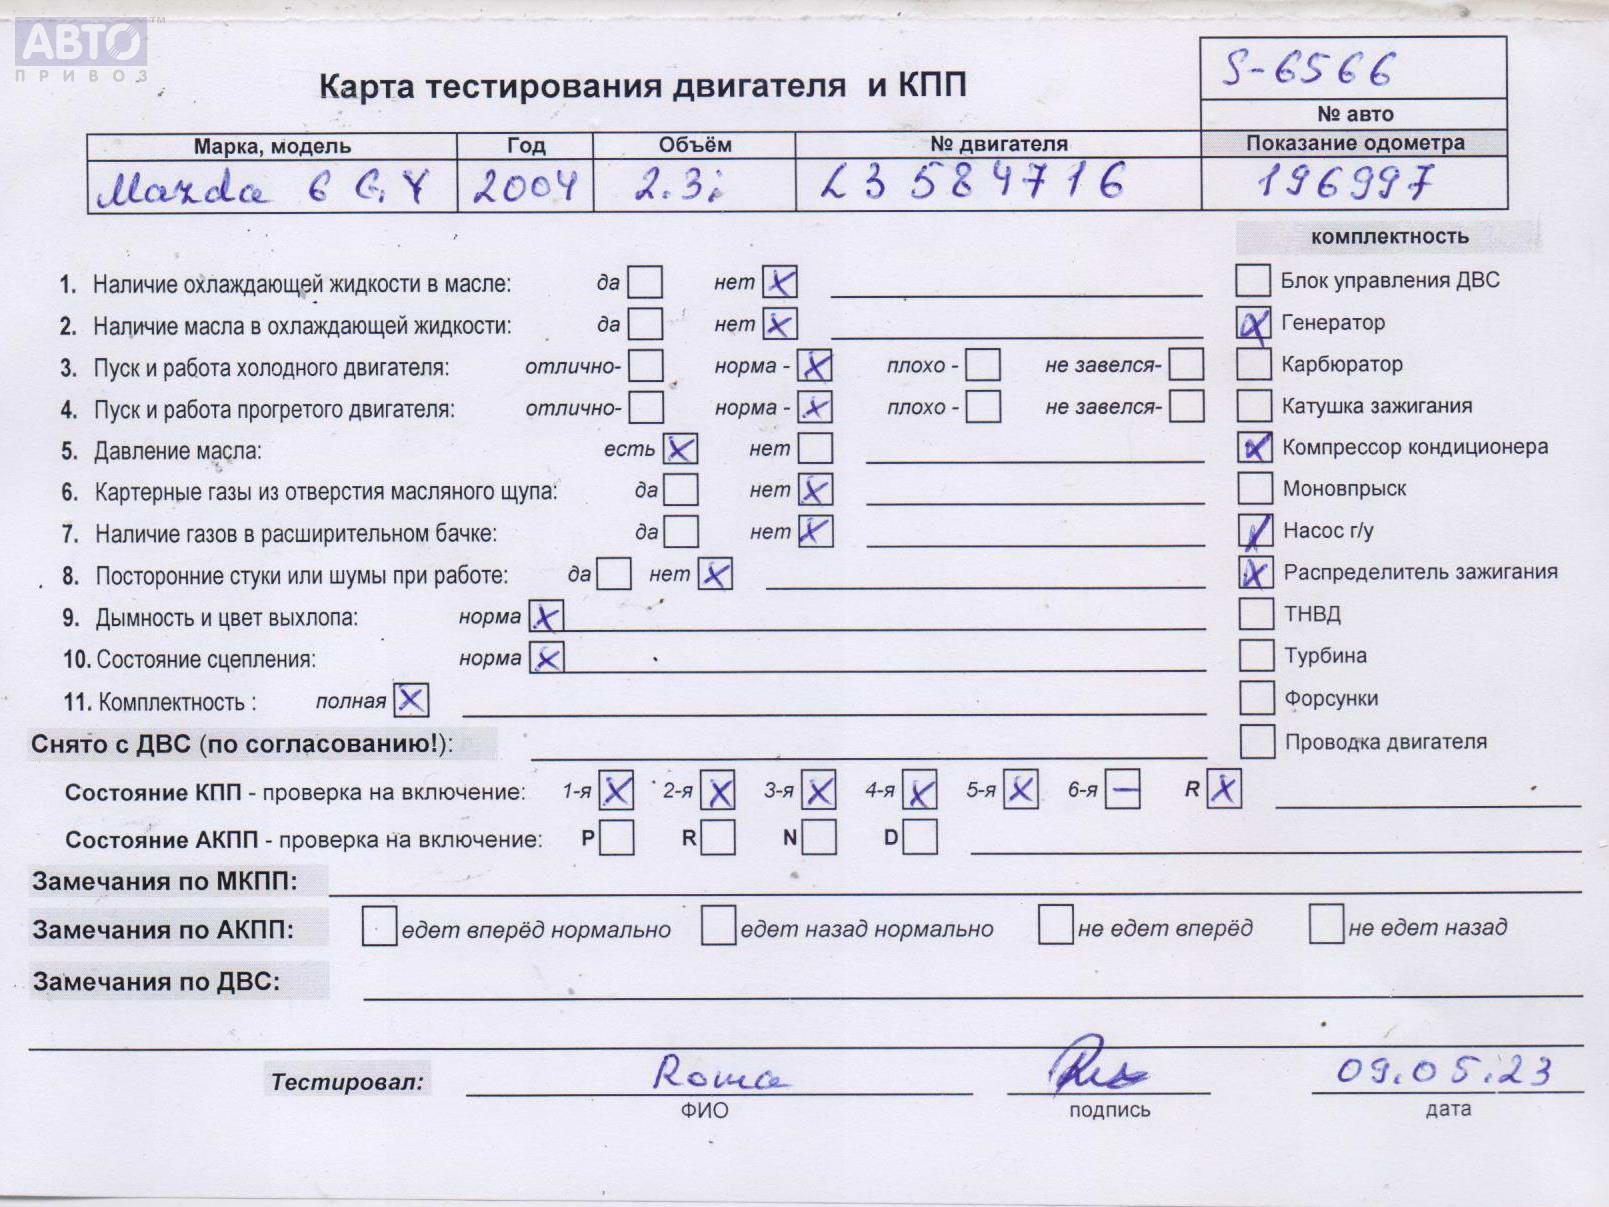 АВТО ™
ПРИВОЗ
S-6566
Карта тестирования двигателя и КПП
№ авто
Марка, модель Год Объём № двигателя Показание одометра
Mazda 6 GY 2004 2.3i L3 584716 196997
комплектность
1. Наличие охлаждающей жидкости в масле: да нет X Блок управления ДВС
2. Наличие масла в охлаждающей жидкости: да нет X X Генератор
3. Пуск и работа холодного двигателя: отлично- норма - X плохо - не завелся- Карбюратор
4. Пуск и работа прогретого двигателя: отлично- норма - X плохо - не завелся- Катушка зажигания
5. Давление масла: есть X нет X Компрессор кондиционера
6. Картерные газы из отверстия масляного щупа: да нет X Моновпрыск
7. Наличие газов в расширительном бачке: да нет X Насос г/у
8. Посторонние стуки или шумы при работе: да нет X X Распределитель зажигания
9. Дымность и цвет выхлопа: норма X ТНВД
10. Состояние сцепления: норма X Турбина
11. Комплектность : полная X Форсунки
Снято с ДВС (по согласованию!): Проводка двигателя
Состояние КПП - проверка на включение: 1-я X 2-я X 3-я X 4-я X 5-я X 6-я — R X
Состояние АКПП - проверка на включение: P R N D
Замечания по МКПП:
Замечания по АКПП: едет вперёд нормально едет назад нормально не едет вперёд не едет назад
Замечания по ДВС:
Тестировал: Roma 09.05.23
ФИО подпись дата